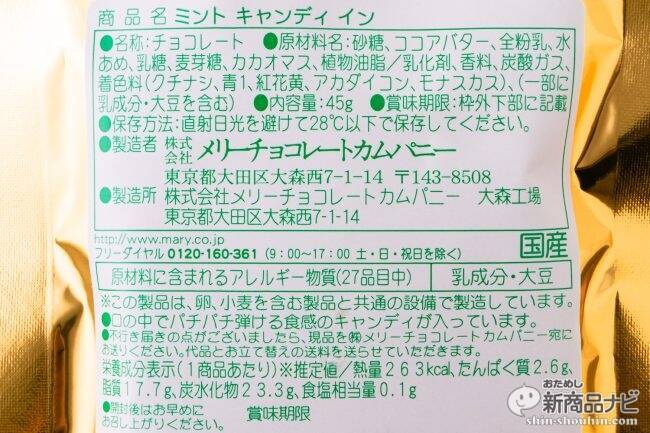 商品名 ミント キャンディ イン
●名称:チョコレート ●原材料名:砂糖、ココアバター、全粉乳、水
あめ、乳糖、麦芽糖、カカオマス、植物油脂/乳化剤、香料、炭酸ガス、
着色料(クチナシ、青1、紅花黄、アカダイコン、モナスカス)、(一部に
乳成分・大豆を含む) ●内容量:45g ●賞味期限:枠外下部に記載
●保存方法:直射日光を避けて28℃以下で保存してください。
●製造者 株式会社 メリーチョコレートカムパニー
東京都大田区大森西7-1-14 〒143-8508
●製造所 株式会社メリーチョコレートカムパニー 大森工場
東京都大田区大森西7-1-14
http://www.mary.co.jp
フリーダイヤル 0120-160-361 (9:00~17:00 土・日・祝日を除く)
国産
原材料に含まれるアレルギー物質(27品目中) 乳成分・大豆
※この製品は、卵、小麦を含む製品と共通の設備で製造しています。
●口の中でパチパチ弾ける食感のキャンディが入っています。
●不行き届きの点がございましたら、現品を㈱メリーチョコレートカムパニー宛に
お送りください。代品とお立て替えの送料を送らせていただきます。
栄養成分表示(1商品あたり)※推定値/熱量263kcal、たんぱく質2.6g、
脂質17.7g、炭水化物23.3g、食塩相当量0.1g
●開封後はお早めに
お召し上がりください。
賞味期限
おためし
新商品ナビ
shin-shouhin.com